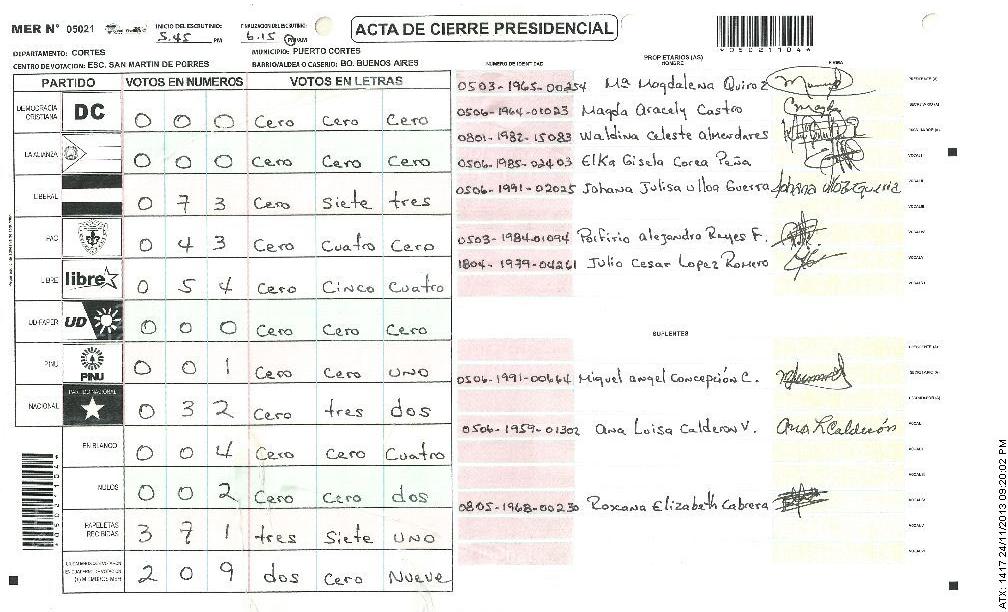 MER Nº 05021
INICIO DEL ESCRUTINIO: 5.45 PM
FINALIZACION DEL ESCRUTINIO: 6.15 PM AM
ACTA DE CIERRE PRESIDENCIAL
DEPARTAMENTO: CORTES
MUNICIPIO: PUERTO CORTES
CENTRO DE VOTACION: ESC. SAN MARTIN DE PORRES
BARRIO/ALDEA O CASERIO: BO. BUENOS AIRES
PARTIDO VOTOS EN NUMEROS VOTOS EN LETRAS
DEMOCRACIA CRISTIANA DC 0 0 0 Cero Cero Cero
LA ALIANZA 0 0 0 Cero Cero Cero
LIBERAL 0 7 3 Cero Siete tres
PAC 0 4 3 Cero Cuatro Cero
LIBRE libre 0 5 4 Cero Cinco Cuatro
UD-FAPER UD 0 0 0 Cero Cero Cero
PINU PINU 0 0 1 Cero Cero UNO
NACIONAL PARTIDO NACIONAL 0 3 2 Cero tres dos
EN BLANCO 0 0 4 Cero Cero Cuatro
NULOS 0 0 2 Cero Cero dos
PAPELETAS RECIBIDAS 3 7 1 tres Siete UNO
2 0 9 dos Cero Nueve
NUMERO DE IDENTIDAD
PROPIETARIOS (AS)
NOMBRE
FIRMA
0503-1965-00254 Mª Magdalena Quiroz
0506-1964-01023 Magda Aracely Castro
0801-1982-15083 Waldina Celeste Almendares
0506-1985-02403 Elka Gisela Corea Peña
0506-1991-02025 Johana Julisa Ulloa Guerra
0503-1984-01094 Porfirio Alejandro Reyes F.
1804-1979-04261 Julio Cesar Lopez Romero
SUPLENTES
0506-1991-00664 Miguel angel Concepción C.
0506-1959-01302 Ana Luisa Calderon V. Ana L Calderón
0805-1968-00230 Roxana Elizabeth Cabrera
ATX: 1417 24/11/2013 09:20:02 PM